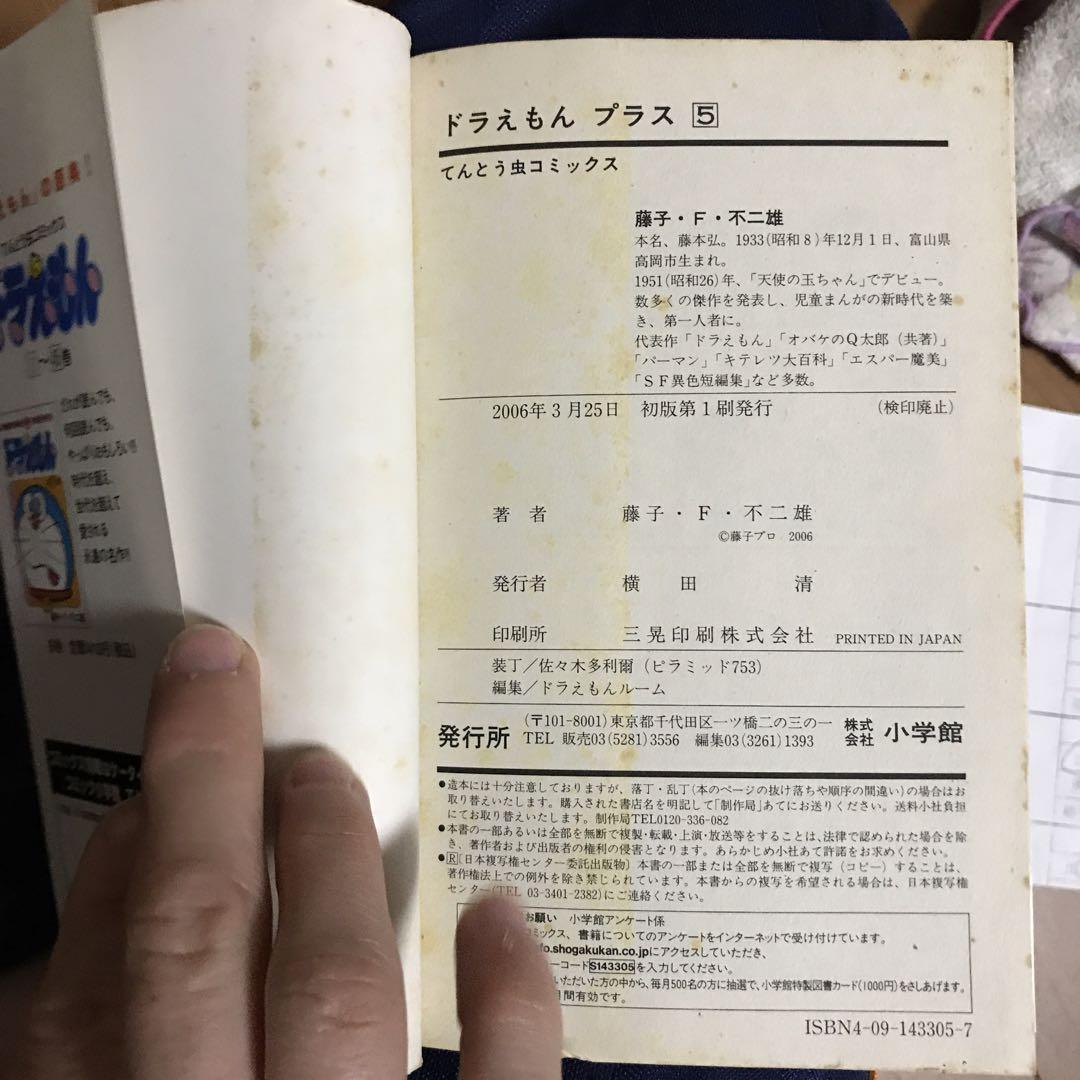 ドラえもん プラス 5
てんとう虫コミックス
藤子・F・不二雄
本名、藤本弘。1933(昭和8)年12月1日、富山県
高岡市生まれ。
1951(昭和26)年、「天使の玉ちゃん」でデビュー。
数多くの傑作を発表し、児童まんがの新時代を築
き、第一人者に。
代表作「ドラえもん」「オバケのQ太郎(共著)」
「パーマン」「キテレツ大百科」「エスパー魔美」
「SF異色短編集」など多数。
2006年3月25日 初版第1刷発行 (検印廃止)
著者 藤子・F・不二雄
©藤子プロ 2006
発行者 横田 清
印刷所 三晃印刷株式会社 PRINTED IN JAPAN
装丁/佐々木多利爾(ピラミッド753)
編集/ドラえもんルーム
発行所 (〒101-8001)東京都千代田区一ツ橋二の三の一 株式会社 小学館
TEL 販売03(5281)3556 編集03(3261)1393
●造本には十分注意しておりますが、落丁・乱丁(本のページの抜け落ちや順序の間違い)の場合はお
取り替えいたします。購入された書店名を明記して「制作局」あてにお送りください。送料小社負担
にてお取り替えいたします。制作局TEL0120-336-082
●本書の一部あるいは全部を無断で複製・転載・上演・放送等をすることは、法律で認められた場合を除
き、著作者および出版者の権利の侵害となります。あらかじめ小社あて許諾をお求めください。
●R〔日本複写権センター委託出版物〕本書の一部または全部を無断で複写(コピー)することは、
著作権法上での例外を除き禁じられています。本書からの複写を希望される場合は、日本複写権
センター(TEL 03-3401-2382)にご連絡ください。
お願い 小学館アンケート係
ミックス、書籍についてのアンケートをインターネットで受け付けています。
fo.shogakukan.co.jpにアクセスしていただき、
ーコードS143305を入力してください。
いただいた方の中から、毎月500名の方に抽選で、小学館特製図書カード(1000円)をさしあげます。
月間有効です。
ISBN4-09-143305-7
てんとう虫コミックス
ドラえもん
だれが読んでも、
何回読んでも、
やっぱりおもしろい!!
時代を超え、
世代を超えて
愛される
永遠の名作!!